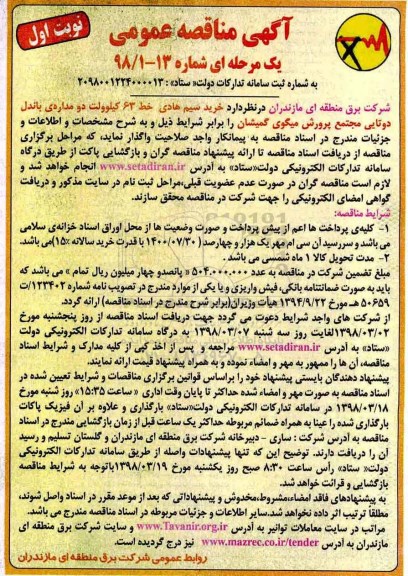 نوبت اول
آگهی مناقصه عمومی
یک مرحله ای شماره ۱۳-۹۸/۱
به شماره ثبت سامانه تدارکات دولت« ستاد» : ۲۰۹۸۰۰۱۲۲۴۰۰۰۰۱۳
شرکت برق منطقه ای مازندران درنظردارد خرید سیم هادی خط ۶۳ کیلوولت دو مداره‌ی باندل
دوتایی مجتمع پرورش میگوی گمیشان را برابر شرایط ذیل و به شرح مشخصات و اطلاعات و
جزئیات مندرج در اسناد مناقصه به پیمانکار واجد صلاحیت واگذار نماید، که مراحل برگزاری
مناقصه از دریافت اسناد مناقصه تا ارائه پیشنهاد مناقصه گران و بازگشایی پاکت از طریق درگاه
سامانه تدارکات الکترونیکی دولت«ستاد» به آدرس www.setadiran.ir انجام خواهد شد و
لازم است مناقصه گران در صورت عدم عضویت قبلی،مراحل ثبت نام در سایت مذکور و دریافت
گواهی امضای الکترونیکی را جهت شرکت در مناقصه محقق سازند.
شرایط مناقصه:
۱- کلیه‌ی پرداخت ها اعم از پیش پرداخت و صورت وضعیت ها از محل اوراق اسناد خزانه‌ی سلامی
می باشد و سررسید آن سی ام مهر یک هزار و چهارصد (۱۴۰۰/۰۷/۳۰) با قدرت خرید سالانه «۱۵»می باشد.
۲- مدت تحویل کالا ۱ ماه شمسی می باشد .
مبلغ تضمین شرکت در مناقصه به عدد «۵۰۴.۰۰۰.۰۰۰ پانصدو چهار میلیون ریال تمام » می باشد که
باید به صورت ضمانتنامه بانکی، فیش واریزی و یا یکی از موارد مندرج در تصویب نامه شماره ۱۲۳۴۰۲/ت
۵۰۶۵۹ هـ مورخ ۱۳۹۴/۹/۲۲ هیأت وزیران(برابر شرح مندرج در اسناد مناقصه) ارائه گردد.
از شرکت های واجد شرایط دعوت می گردد جهت دریافت اسناد مناقصه از روز پنجشنبه مورخ
۱۳۹۸/۰۳/۰۲ لغایت روز سه شنبه ۱۳۹۸/۰۳/۰۷ به درگاه سامانه تدارکات الکترونیکی دولت
«ستاد» به آدرس www.setadiran.ir مراجعه و پس از اخذ کپی از کلیه مدارک و شرایط اسناد
مناقصه، آن ها را ممهور به مهر و امضاء نموده و به همراه پیشنهاد قیمت ارائه نمایند.
پیشنهاد دهندگان بایستی پیشنهاد خود را براساس قوانین برگزاری مناقصات و شرایط تعیین شده در
اسناد مناقصه به صورت مهر و امضاء شده حداکثر تا پایان وقت اداری « ساعت ۱۵:۳۵» روز شنبه مورخ
۱۳۹۸/۰۳/۱۸ در سامانه تدارکات الکترونیکی دولت«ستاد» بارگذاری و علاوه بر آن فیزیک پاکات
بارگذاری شده را عینا به همراه ضمائم مربوطه حداکثر یک ساعت قبل از زمان بازگشایی مندرج در اسناد
مناقصه به آدرس شرکت : ساری - دبیرخانه شرکت برق منطقه ای مازندران و گلستان تسلیم و رسید
آن را دریافت دارند. توضیح این که تنها پیشنهادات واصله از طریق سامانه تدارکات الکترونیکی
دولت« ستاد» رأس ساعت ۸:۳۰ صبح روز یکشنبه مورخ ۱۳۹۸/۰۳/۱۹ باتوجه به شرایط مناقصه
بازگشایی و قرائت خواهد شد.
به پیشنهادهای فاقد امضاء،مشروط،مخدوش و پیشنهاداتی که بعد از موعد مقرر در اسناد واصل شوند،
مطلقا ترتیب اثر داده نخواهدشد.سایر اطلاعات و جزئیات مربوطه در اسناد مناقصه مندرج می باشد.
مراتب در سایت معاملات توانیر به آدرس www.Tavanir.org.ir و سایت شرکت برق منطقه ای
مازندران به آدرس www.mazrec.co.ir/tender نیز درج گردیده است.
روابط عمومی شرکت برق منطقه ای مازندران